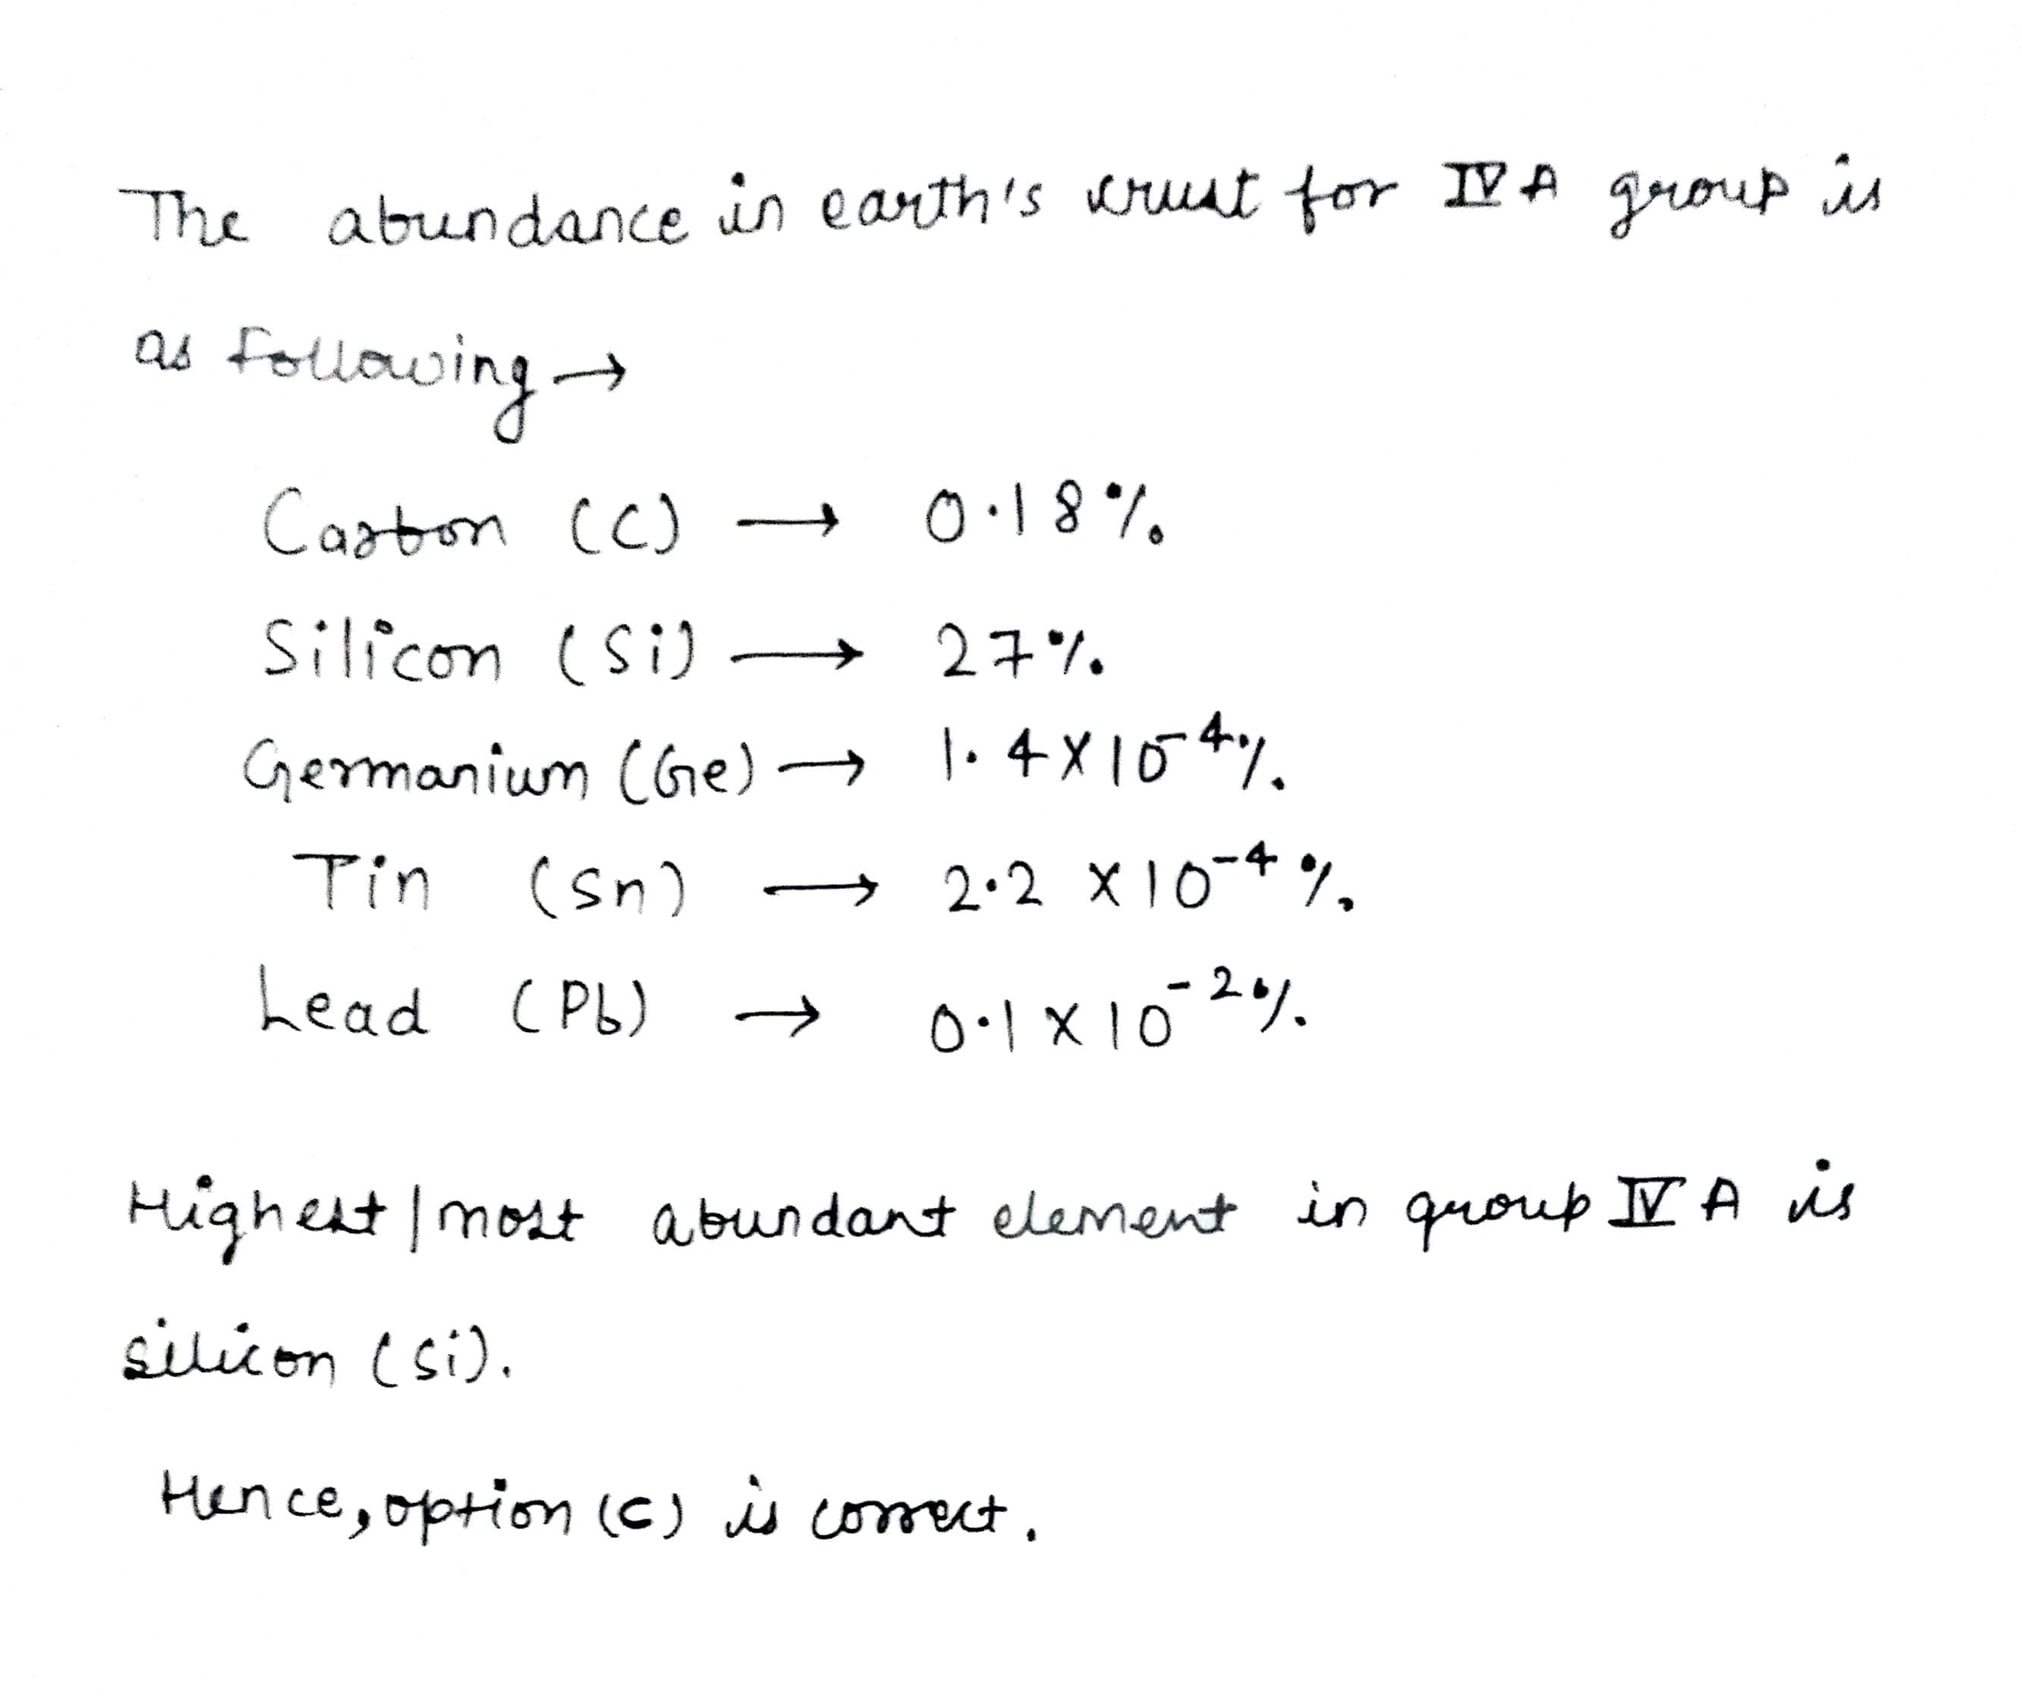 The abundance in earth's crust for IV A group is
as following →
Carbon (C) → 0.18%
Silicon (Si) → 27%
Germanium (Ge) → 1.4 X 10⁻⁴%
Tin (Sn) → 2.2 X 10⁻⁴%
Lead (Pb) → 0.1 X 10⁻²%
Highest / most abundant element in group IV A is
silicon (Si).
Hence, option (C) is correct.